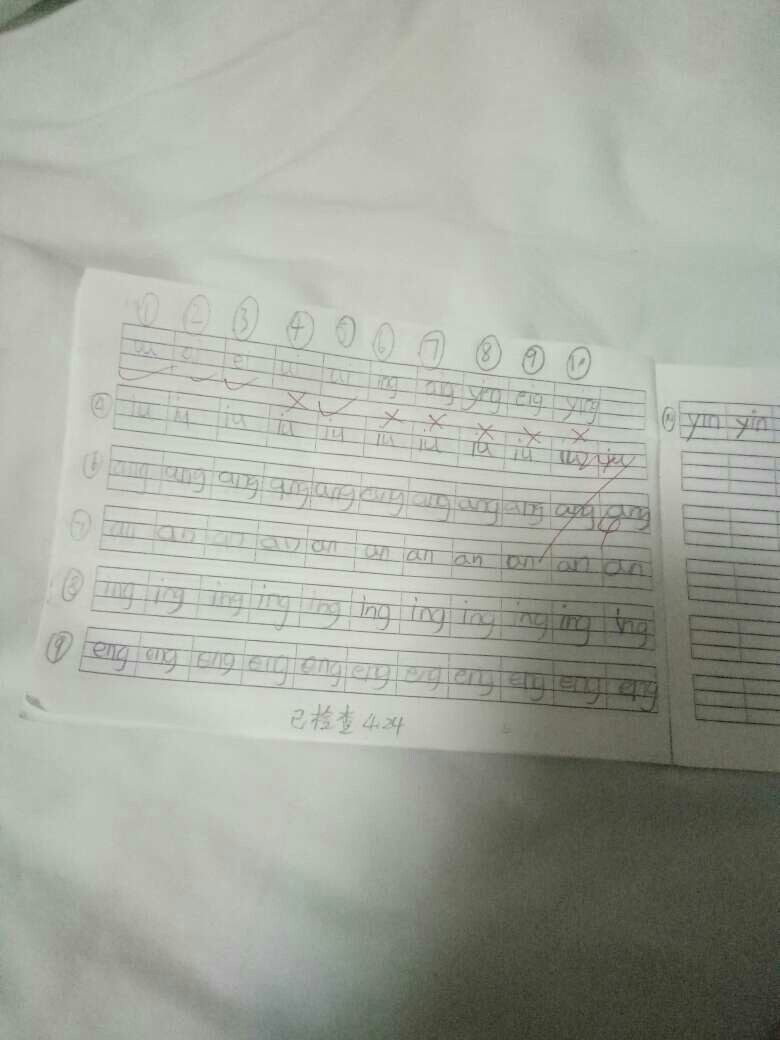 ① ② ③ ④ ⑤ ⑥ ⑦ ⑧ ⑨ ⑩
ui ai ei ui ui ing aig yeg eig ying
④ iu iu iu iu iu iu iu iu iu
⑥ ang ang ang ang ang ang ang ang ang ang ang
⑦ an an an an an an an an an an an
⑧ ing ing ing ing ing ing ing ing ing ing ing
⑨ eng eng eng eng eng eng eng eng eng eng eng
已检查 4.24
⑩ yin yin